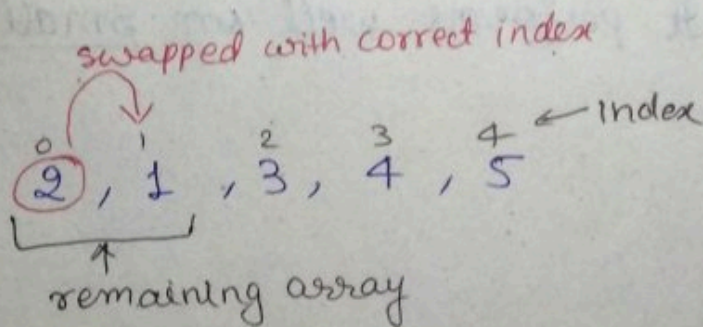 swapped with correct index
0 1 2 3 4 ← Index
2 , 1 , 3 , 4 , 5
remaining array